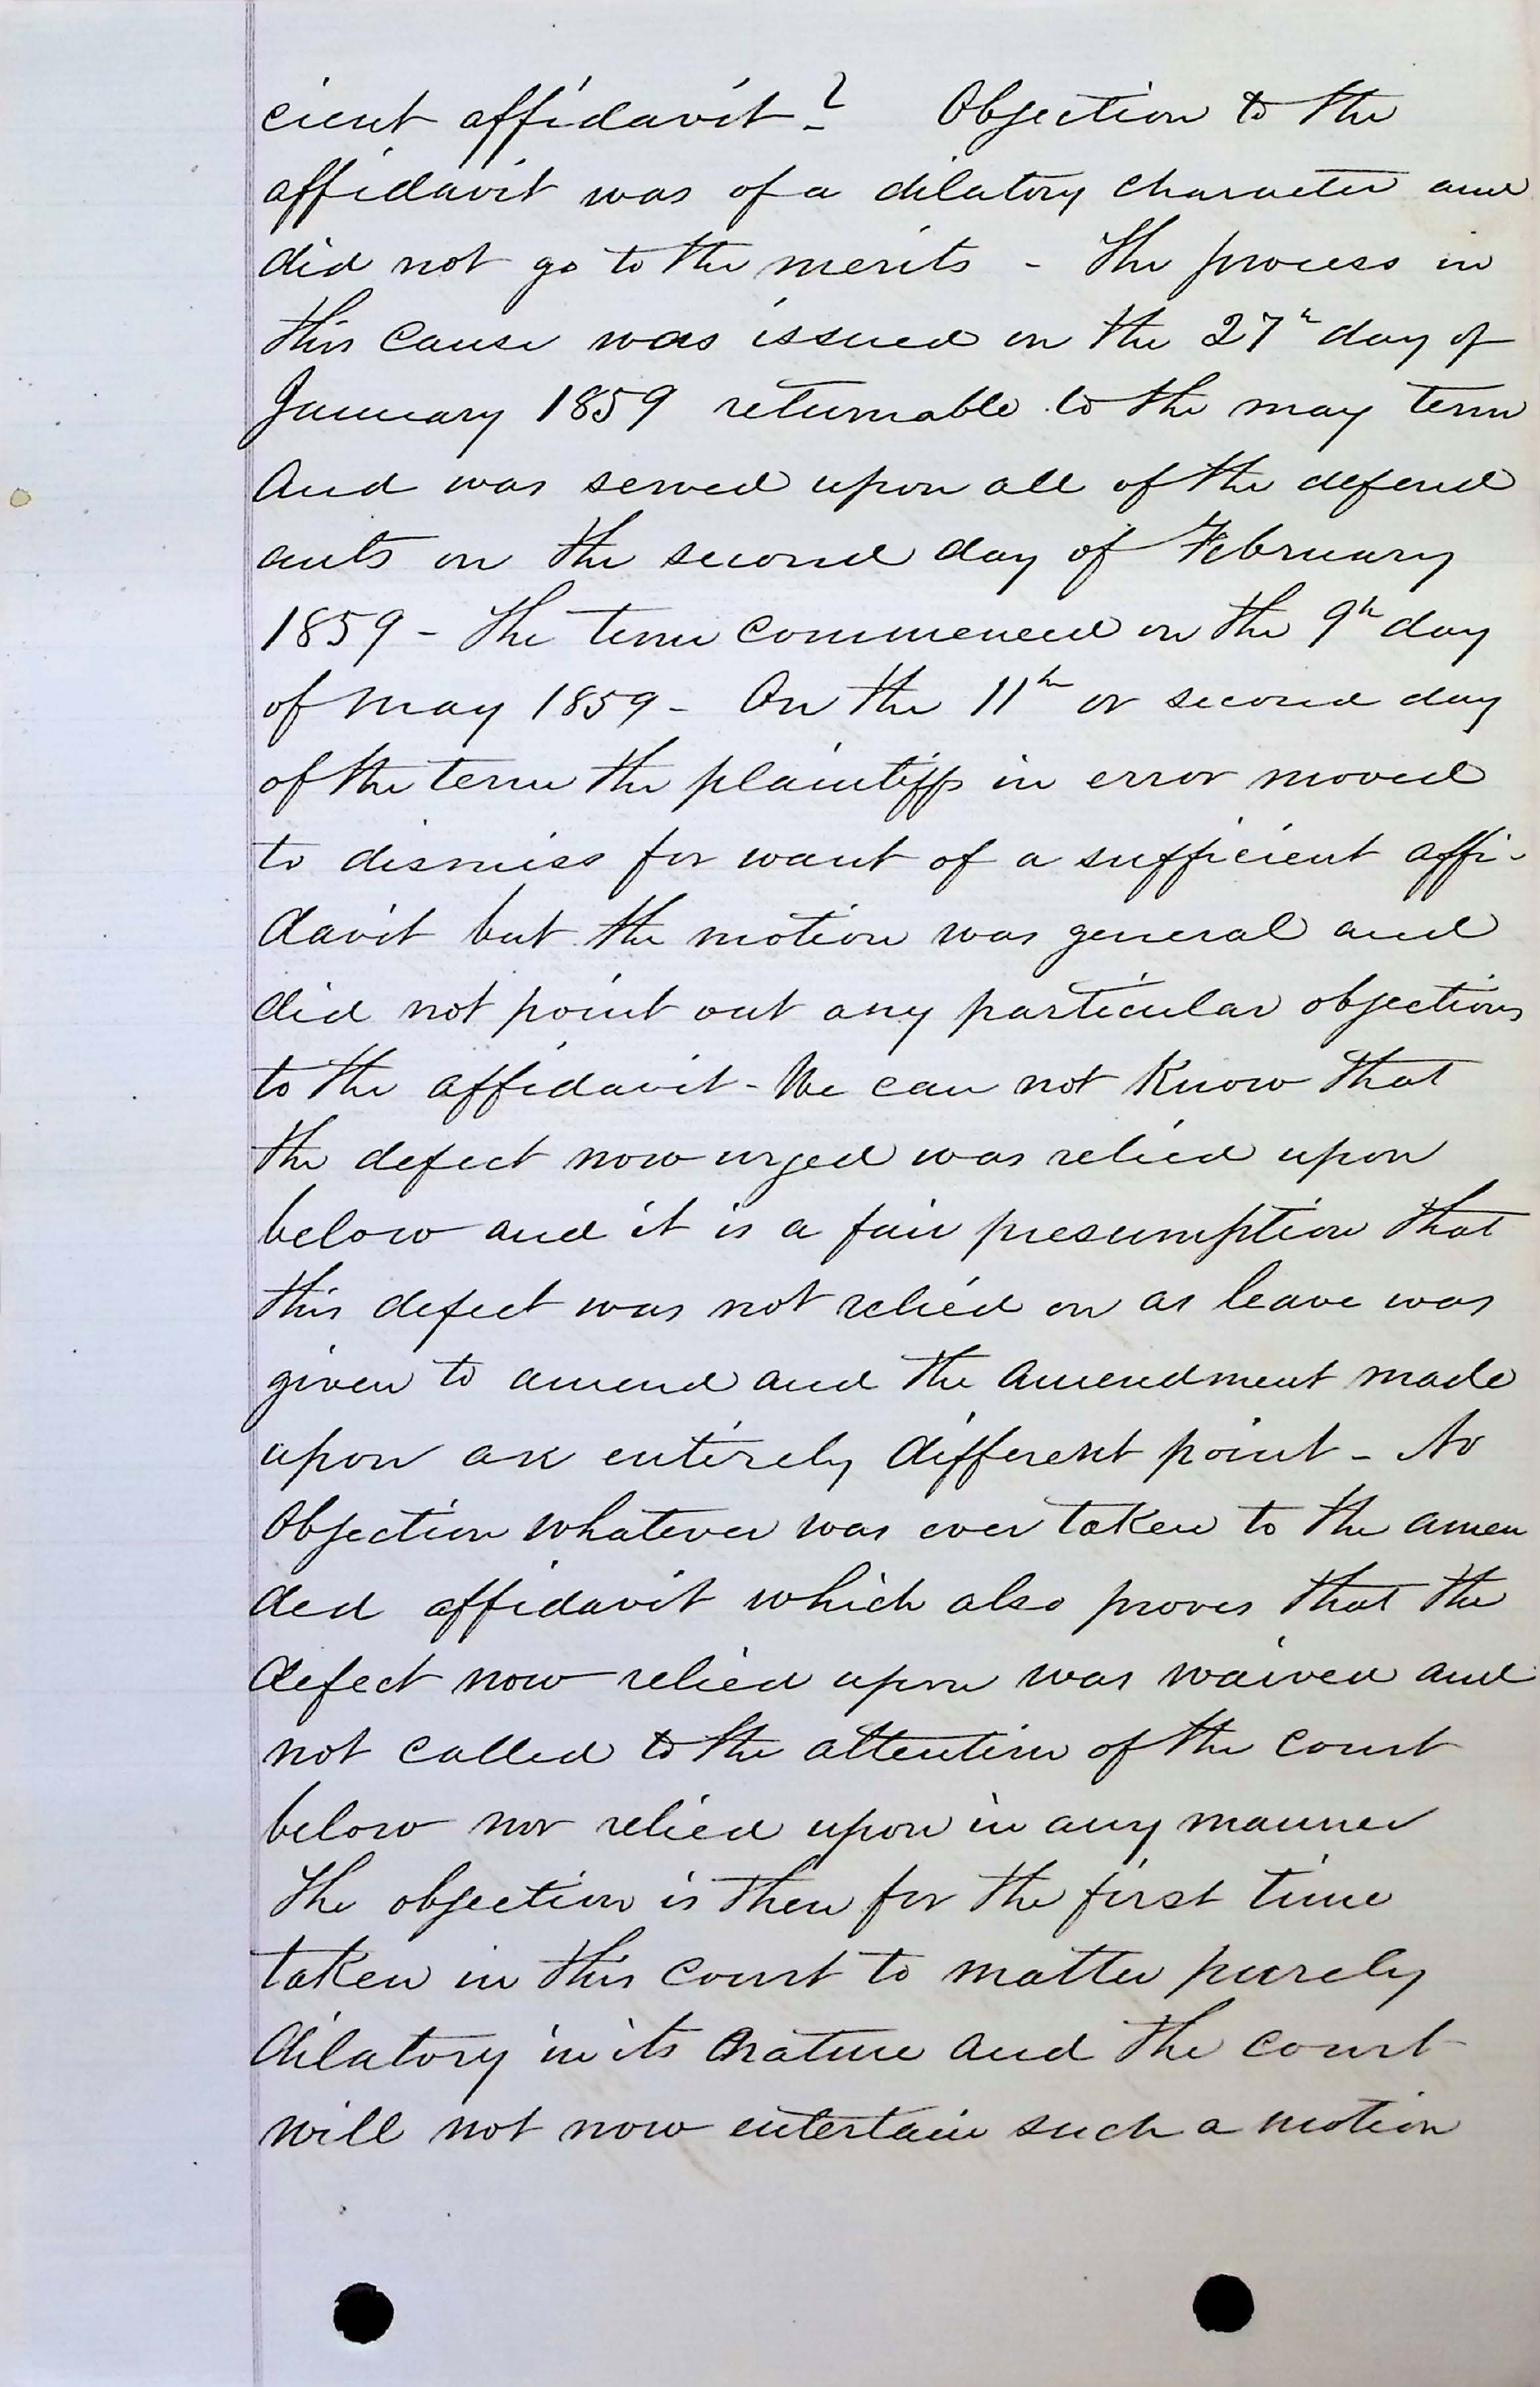 cient affidavit? Objection to the
affidavit was of a dilatory character and
did not go to the merits - The process in
this cause was issued on the 27h day of
January 1859 returnable to the may term
And was served upon all of the defend
ants on the second day of February
1859 - The term commenced on the 9h day
of may 1859 - On the 11h or second day
of the term the plaintiffs in error moved
to dismiss for want of a sufficient affi-
davit but the motion was general and
did not point out any particular objections
to the affidavit - We can not Know that
the defect now urged was relied upon
below and it is a fair presumption that
this defect was not relied on as leave was
given to amend and the amendment made
upon an entirely different point - No
Objection whatever was ever taken to the amen
ded affidavit which also proves that the
defect now relied upon was waived and
not called to the attention of the court
below nor relied upon in any manner
The objection is then for the first time
taken in this court to matter purely
dilatory in its nature and the court
will not now entertain such a motion